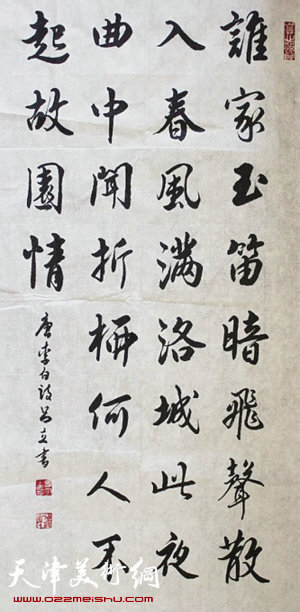 誰家玉笛暗飛聲散
入春風滿洛城此夜
曲中聞折柳何人不
起故園情
唐李白詩 书
天津美術網
www.022meishu.com